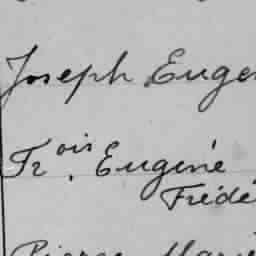 Joseph Euge
Frois. Eugène
Frédé
Pierre Marie